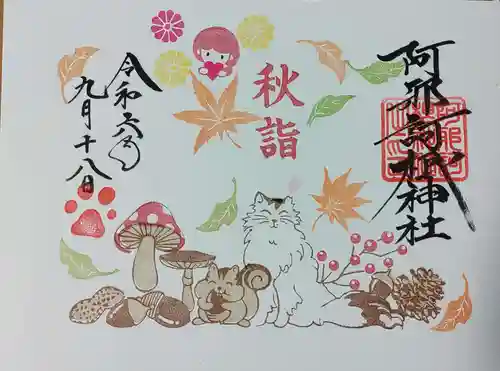 阿邪訶根神社
秋詣
令和六年
九月十八日